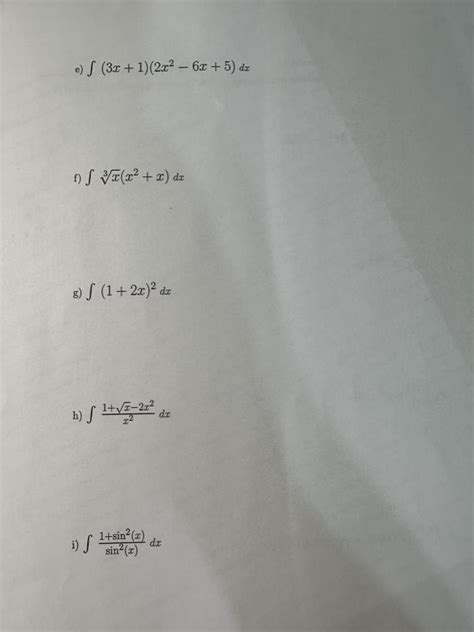 e) ∫ (3x + 1)(2x² − 6x + 5) dx
f) ∫ ∛x(x² + x) dx
g) ∫ (1 + 2x)² dx
h) ∫ (1+√x−2x²)/x² dx
i) ∫ (1+sin²(x))/sin²(x) dx